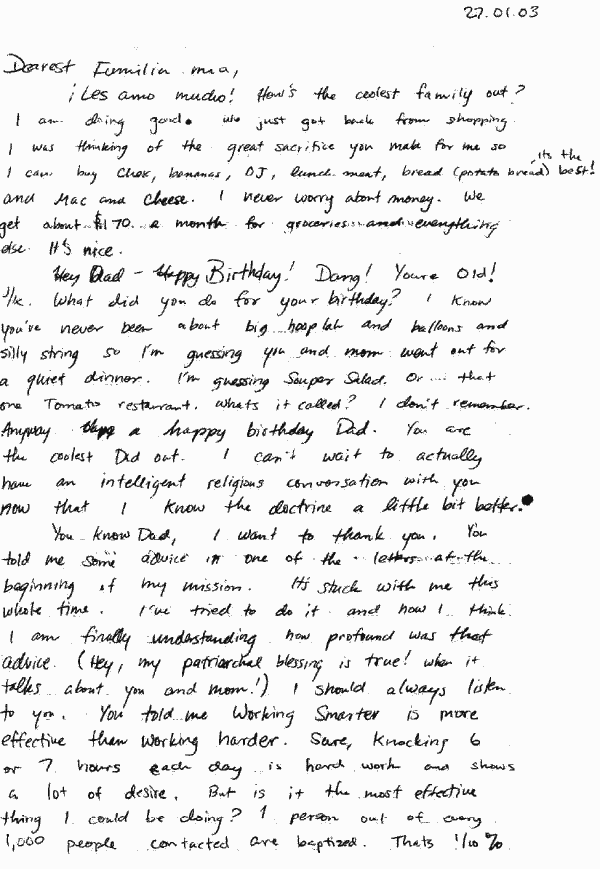 27.01.03
Dearest Familia mia,
¡Les amo mucho! How's the coolest family out?
I am doing good. We just got back from shopping.
I was thinking of the great sacrifice you make for me so
its the
I can buy Chex, bananas, OJ, lunch meat, bread (potato bread) best!
and Mac and Cheese. I never worry about money. We
get about $170 a month for groceries and everything
else. It's nice.
Hey Dad - Happy Birthday! Dang! Youre Old!
J/K. What did you do for your birthday? I know
you've never been about big hoop lah and balloons and
silly string so I'm guessing you and mom went out for
a quiet dinner. I'm guessing Souper Salad. Or ... that
one Tomato restaurant. Whats it called? I don't remember.
Anyway a happy birthday Dad. You are
the coolest Dad out. I can't wait to actually
have an intelligent religious conversation with you
now that I know the doctrine a little bit better.
You know Dad, I want to thank you. You
told me some advice in one of the letters at the
beginning of my mission. It's stuck with me this
whole time. I've tried to do it and now I think
I am finally understanding how profound was that
advice. (Hey, my patriarchal blessing is true! when it
talks about you and mom!) I should always listen
to you. You told me Working Smarter is more
effective than working harder. Sure, Knocking 6
or 7 hours each day is hard work and shows
a lot of desire. But is it the most effective
thing I could be doing? 1 person out of every
1,000 people contacted are baptized. Thats 1/10 %